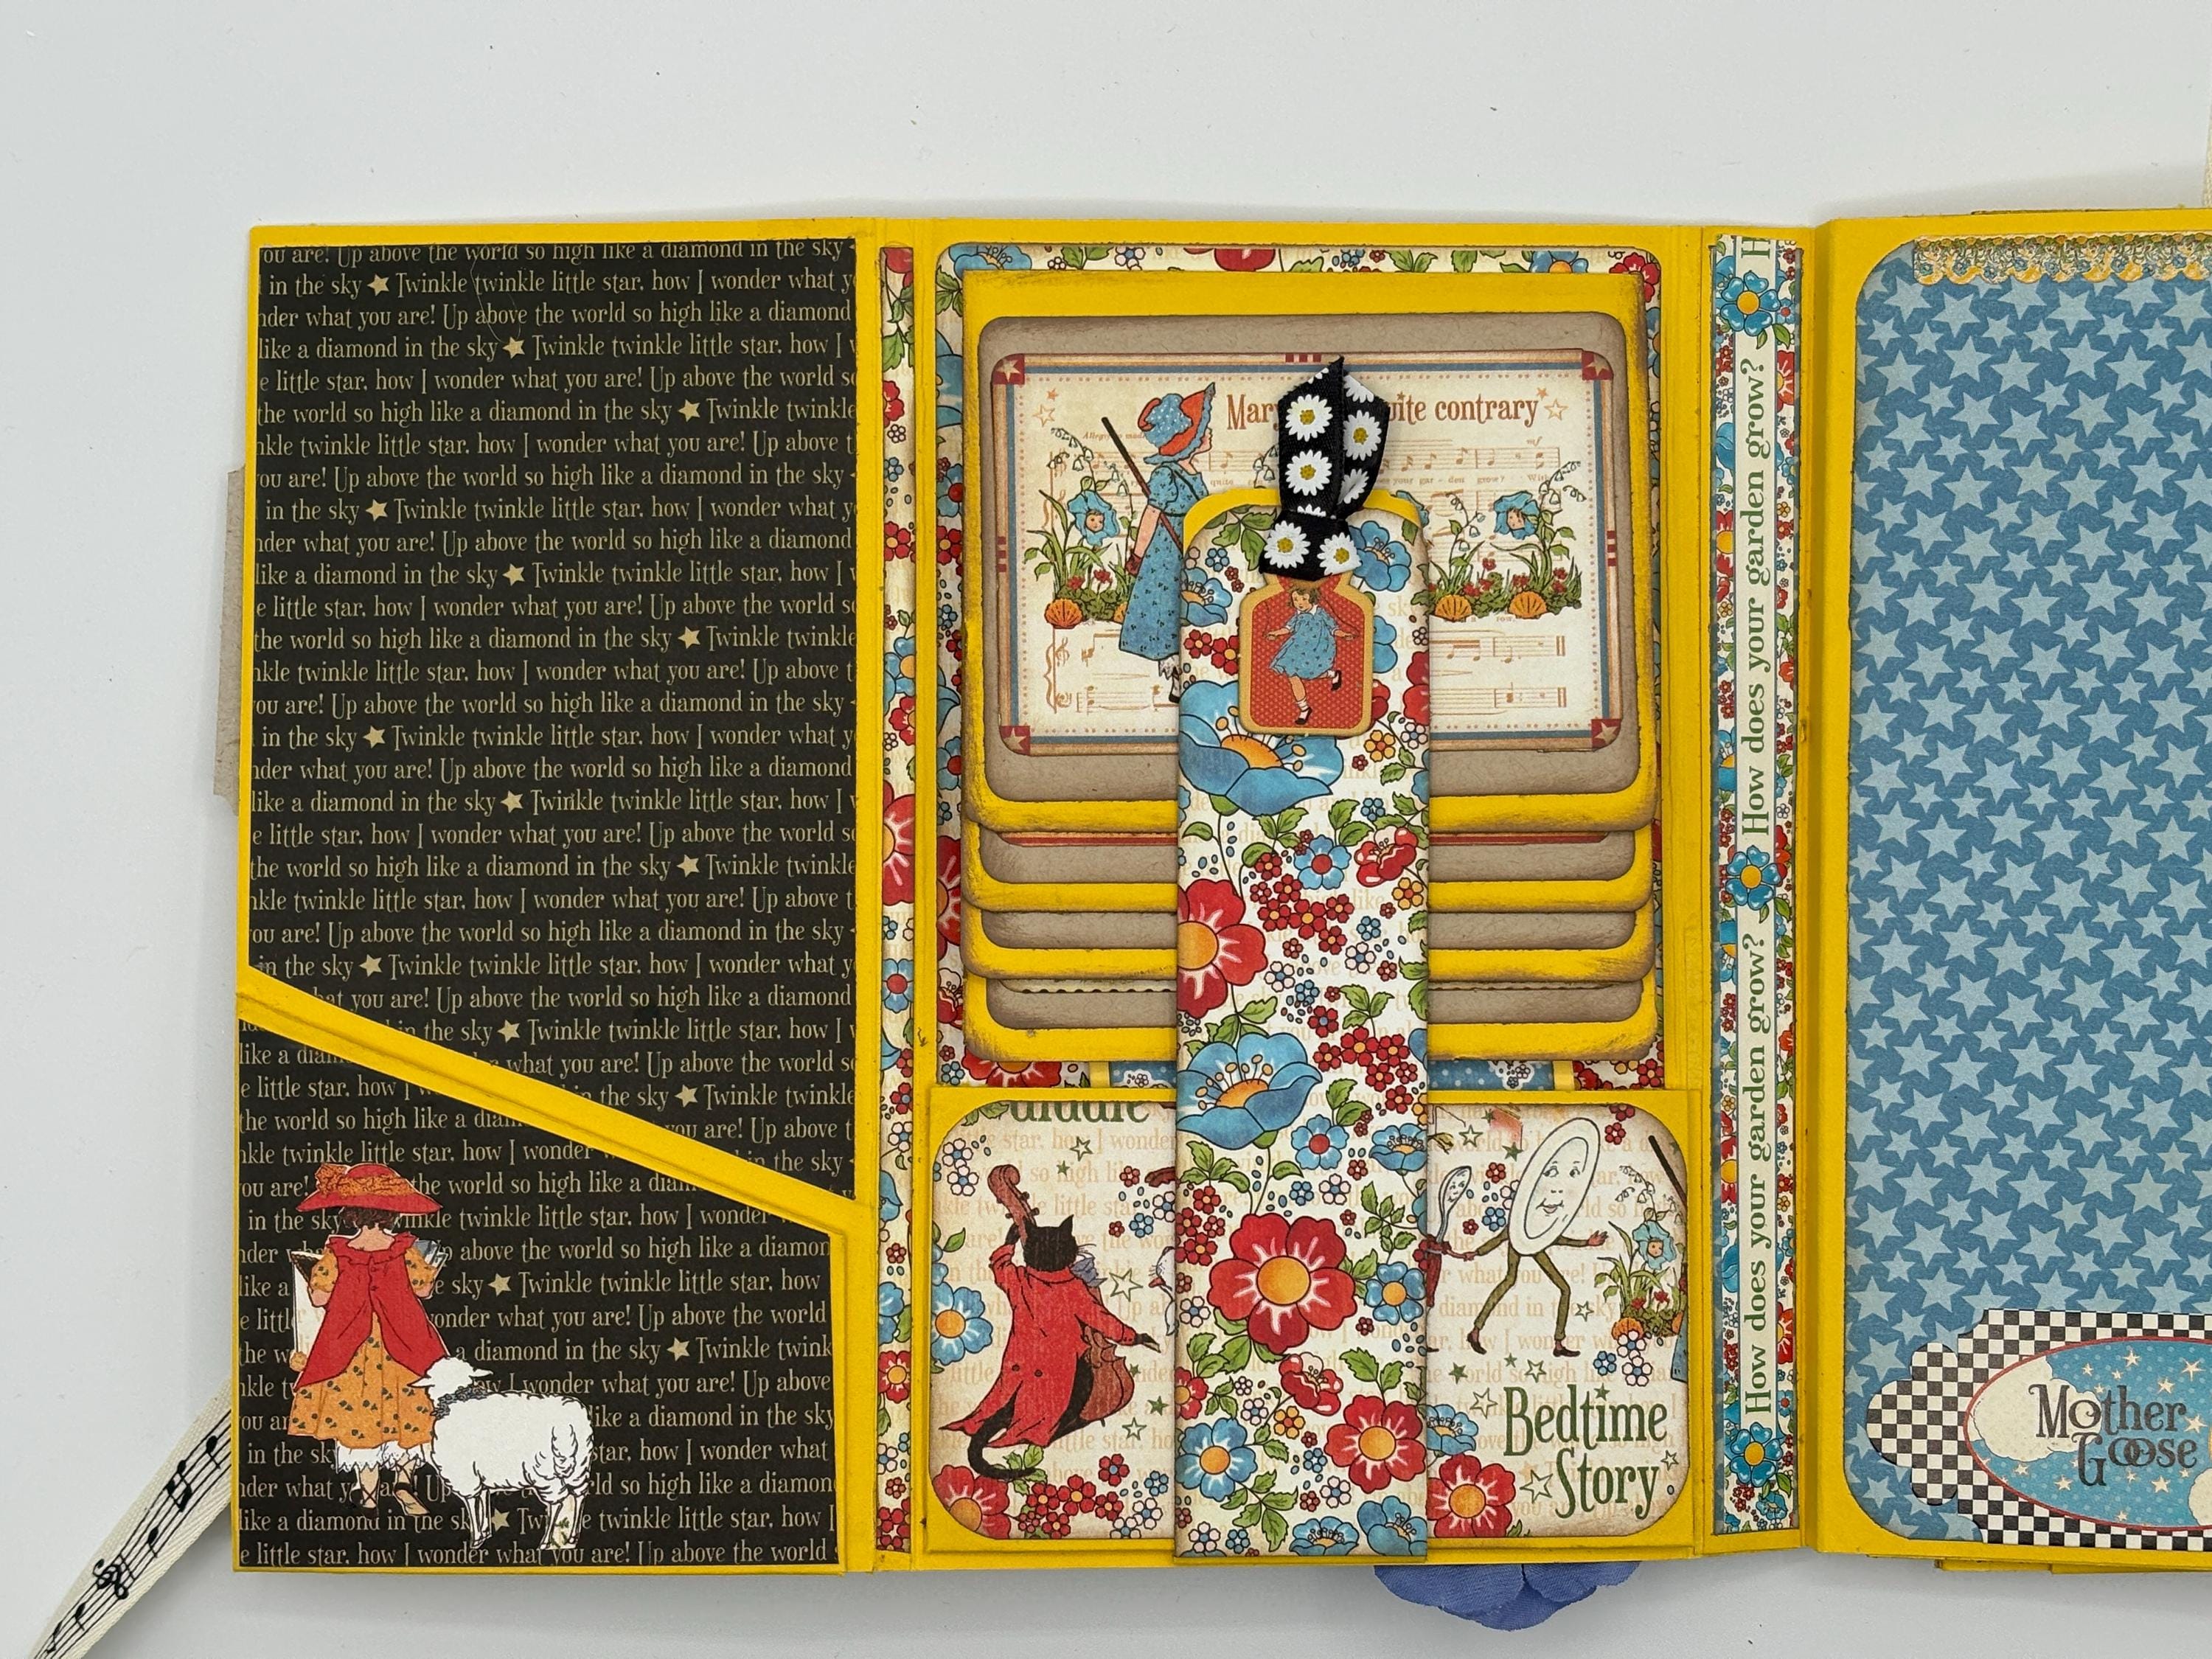 ou are! Up above the world so high like a diamond in the sky
in the sky ★ Twinkle twinkle little star, how I wonder what y
nder what you are! Up above the world so high like a diamond
like a diamond in the sky ★ Twinkle twinkle little star, how I
e little star, how I wonder what you are! Up above the world s
the world so high like a diamond in the sky ★ Twinkle twinkle
nkle twinkle little star, how I wonder what you are! Up above t
ou are! Up above the world so high like a diamond in the sky
in the sky ★ Twinkle twinkle little star, how I wonder what y
nder what you are! Up above the world so high like a diamond
like a diamond in the sky ★ Twinkle twinkle little star, how I
e little star, how I wonder what you are! Up above the world s
the world so high like a diamond in the sky ★ Twinkle twinkle
nkle twinkle little star, how I wonder what you are! Up above t
ou are! Up above the world so high like a diamond in the sky
in the sky ★ Twinkle twinkle little star, how I wonder what y
nder what you are! Up above the world so high like a diamond
like a diamond in the sky ★ Twinkle twinkle little star, how I
e little star, how I wonder what you are! Up above the world s
the world so high like a diamond in the sky ★ Twinkle twinkle
nkle twinkle little star, how I wonder what you are! Up above t
ou are! Up above the world so high like a diamond in the sky
in the sky ★ Twinkle twinkle little star, how I wonder what y
hat you are! Up above the world so high like a diamond
in the sky ★ Twinkle twinkle little star, how I
what you are! Up above the world s
the sky ★ Twinkle twinkle
you are! Up above t
in the sky
like a diam
e little star, how I
the world so high like a diam
nkle twinkle little star, how I wonder
ou are! the world so high like a diam
in the sky inkle twinkle little star, how I wonder
nder above the world so high like a diamon
like a e sky ★ Twinkle twinkle little star, how
e little onder what you are! Up above the world
the w a diamond in the sky ★ Twinkle twink
nkle t how I wonder what you are! Up above
ou ar like a diamond in the sky
in the sky star, how I wonder what
nder what y Up rld so high like a diamon
like a diamond in the sk ★ Twi e twinkle little star, how I
e little star, how I wonder what you are! Up above the world
Mar uite contrary
quite
es your gar - den grow? Wit
diddle
star, how I wonder
Bedtime
Story
How does your garden grow? How does your garden grow? How does your garden grow? H
Mother
Goose